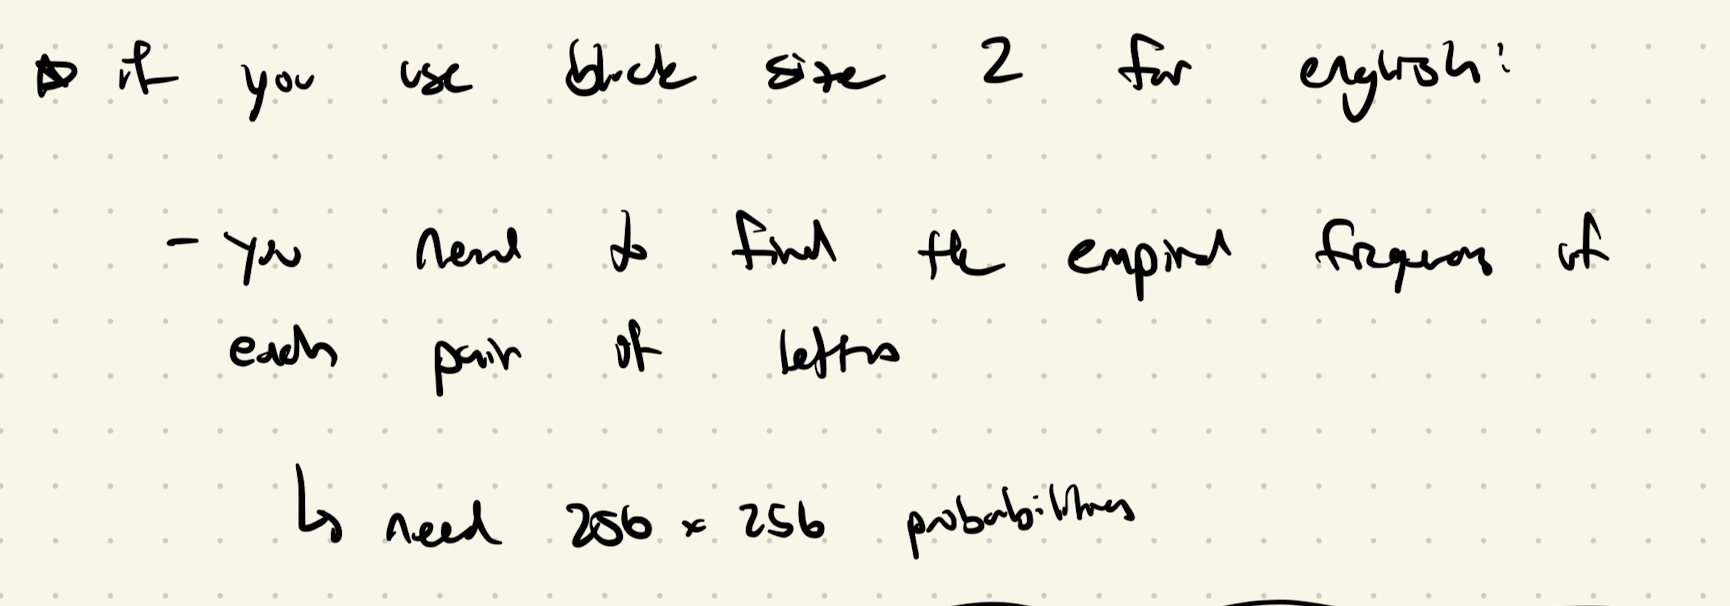 if you use block size 2 for english:
- you need to find the empirical frequency of
each pair of letters
need 256 × 256 probabilities